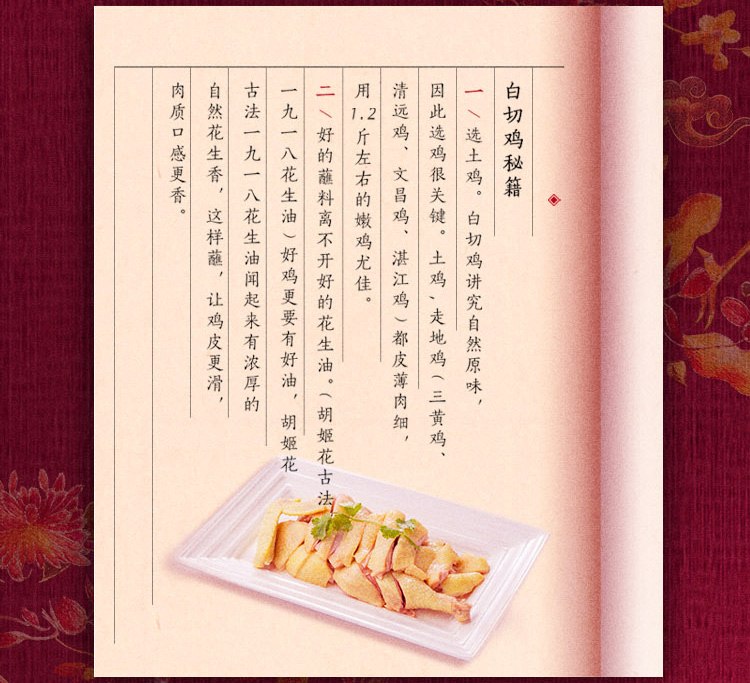 白切鸡秘籍
一\选土鸡。白切鸡讲究自然原味，
因此选鸡很关键。土鸡、走地鸡（三黄鸡、
清远鸡、文昌鸡、湛江鸡）都皮薄肉细，
用1.2斤左右的嫩鸡尤佳。
二\好的蘸料离不开好的花生油。（胡姬花古法
一九一八花生油）好鸡更要有好油，胡姬花
古法一九一八花生油闻起来有浓厚的
自然花生香，这样蘸，让鸡皮更滑，
肉质口感更香。